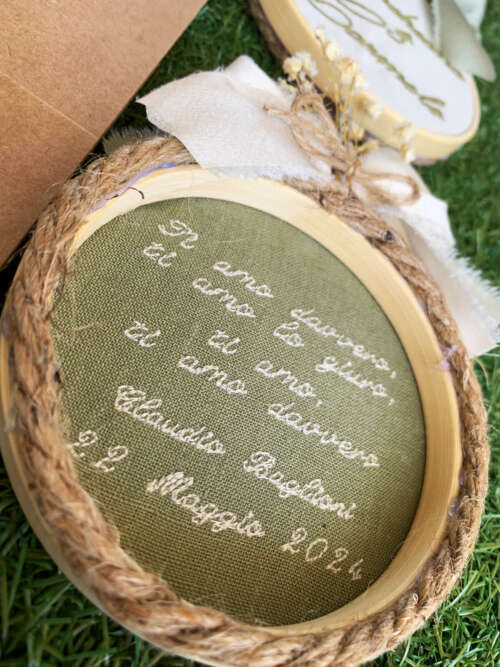 Ti amo davvero,
ti amo lo giuro,
ti amo,
ti amo davvero
Claudio Baglioni
22 Maggio 2024